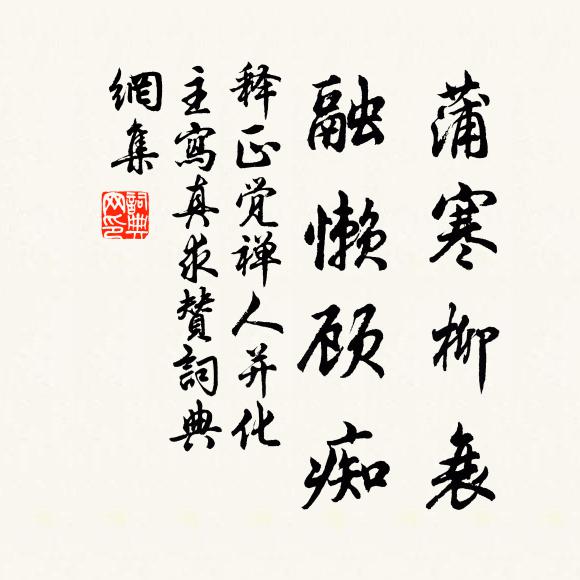 蒲寒柳衰
融懒顾痴
释正觉禅人并化
主寫真求贊詞典
網集
詞典
网印